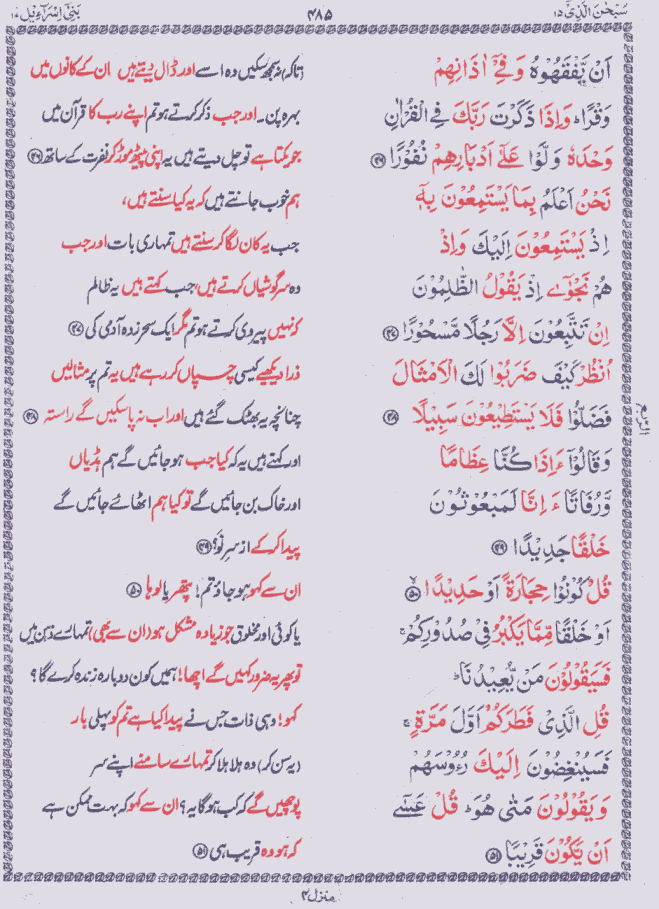 سُبْحٰنَ الَّذِیْۤ ۱۵
۴۸۵
بَنِیْۤ اِسْرَآءِیْل ۱۷
اَنْ یَّفْقَهُوْهُ وَ فِیْۤ اٰذَانِهِمْ
(تاکہ) نہ سمجھ سکیں وہ اسے اور ڈال دیتے ہیں ان کے کانوں میں
وَقْرًا ؕ وَ اِذَا ذَكَرْتَ رَبَّكَ فِی الْقُرْاٰنِ
بہرہ پن۔ اور جب ذکر کرتے ہو تم اپنے رب کا قرآن میں
وَحْدَهٗ وَلَّوْا عَلٰۤی اَدْبَارِهِمْ نُفُوْرًا ﴿۴۶﴾
جو یکتا ہے تو چل دیتے ہیں یہ اپنی پیٹھ موڑ کر نفرت کے ساتھ ﴿۴۶﴾
نَحْنُ اَعْلَمُ بِمَا یَسْتَمِعُوْنَ بِهٖۤ
ہم خوب جانتے ہیں کہ یہ کیا سنتے ہیں،
اِذْ یَسْتَمِعُوْنَ اِلَیْكَ وَ اِذْ
جب یہ کان لگا کر سنتے ہیں تمہاری بات اور جب
هُمْ نَجْوٰۤی اِذْ یَقُوْلُ الظّٰلِمُوْنَ
وہ سرگوشیاں کرتے ہیں، جب کہتے ہیں یہ ظالم
اِنْ تَتَّبِعُوْنَ اِلَّا رَجُلًا مَّسْحُوْرًا ﴿۴۷﴾
کہ نہیں پیروی کرتے ہو تم مگر ایک سحر زدہ آدمی کی ﴿۴۷﴾
اُنْظُرْ كَیْفَ ضَرَبُوْا لَكَ الْاَمْثَالَ
ذرا دیکھیے کیسی چسپاں کر رہے ہیں یہ تم پر مثالیں
فَضَلُّوْا فَلَا یَسْتَطِیْعُوْنَ سَبِیْلًا ﴿۴۸﴾
چنانچہ یہ بھٹک گئے ہیں اور اب نہ پا سکیں گے راستہ ﴿۴۸﴾
وَ قَالُوْۤا ءَاِذَا كُنَّا عِظَامًا
اور کہتے ہیں یہ کہ کیا جب ہو جائیں گے ہم ہڈیاں
وَّ رُفَاتًا ءَاِنَّا لَمَبْعُوْثُوْنَ
اور خاک بن جائیں گے تو کیا ہم اٹھائے جائیں گے
خَلْقًا جَدِیْدًا ﴿۴۹﴾
پیدا کر کے از سر نو؟ ﴿۴۹﴾
قُلْ كُوْنُوْا حِجَارَةً اَوْ حَدِیْدًا ﴿۵۰﴾
ان سے کہو ہو جاؤ تم! پتھر یا لوہا ﴿۵۰﴾
اَوْ خَلْقًا مِّمَّا یَكْبُرُ فِیْ صُدُوْرِكُمْ ۚ
یا کوئی اور مخلوق جو زیادہ مشکل ہو (ان سے بھی) تمہارے ذہن میں
فَسَیَقُوْلُوْنَ مَنْ یُّعِیْدُنَا ؕ
تو پھر یہ ضرور کہیں گے اچھا! ہمیں کون دوبارہ زندہ کرے گا؟
قُلِ الَّذِیْ فَطَرَكُمْ اَوَّلَ مَرَّةٍ ۚ
کہو! وہی ذات جس نے پیدا کیا ہے تم کو پہلی بار
فَسَیُنْغِضُوْنَ اِلَیْكَ رُءُوْسَهُمْ
(یہ سن کر) وہ ہلا ہلا کر تمہارے سامنے اپنے سر
وَ یَقُوْلُوْنَ مَتٰی هُوَ ؕ قُلْ عَسٰۤی
پوچھیں گے کہ کب ہو گا یہ؟ ان سے کہو کہ بہت ممکن ہے
اَنْ یَّكُوْنَ قَرِیْبًا ﴿۵۱﴾
کہ ہو وہ قریب ہی ﴿۵۱﴾
منزل ۴